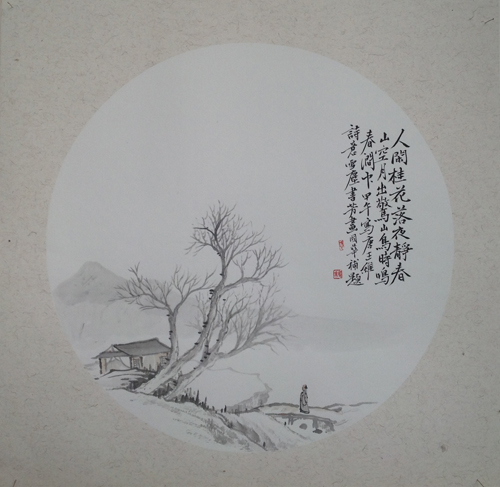 人閑桂花落夜靜春
山空月出驚山鳥時鳴
春澗中甲午寫唐王維
詩意雪塵書芳畫同草補題